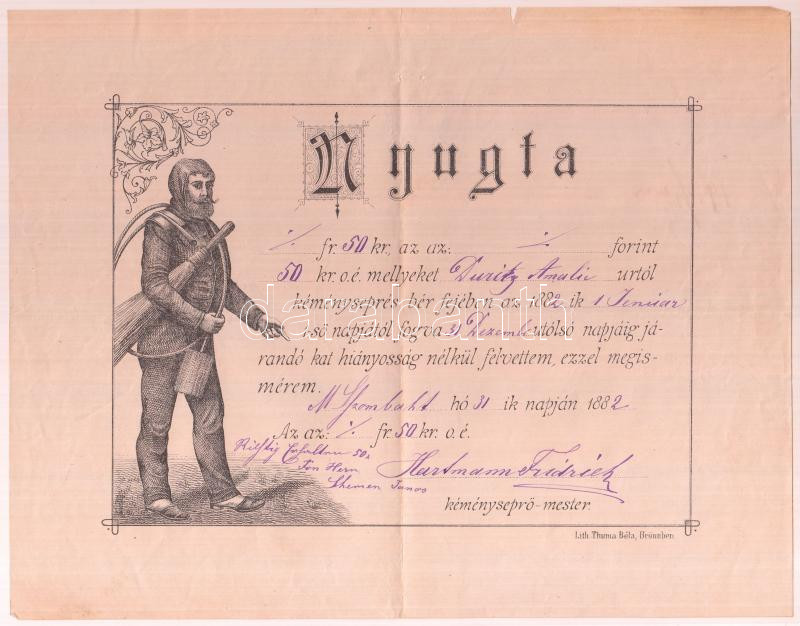 Nyugta
⁒ fr. 50 kr., az az: ⁒ forint
50 kr. o.é. mellyeket Duritz Amalie urtól
kéményseprés bér fejében az 1882 ik 1 Januar
-ső napjától fogva 31 Dezemb utolsó napjáig já-
randó kat hiányosság nélkül felvettem, ezzel megis-
mérem.
M Szombaht hó 31 ik napján 1882
Az az: ⁒ fr. 50 kr. o.é.
Richtig Erhalten 50
Fon Hern
Janos
Hartmann Fridrich
kéményseprő-mester.
Lith. Thuma Béla, Brünnben
darabanth